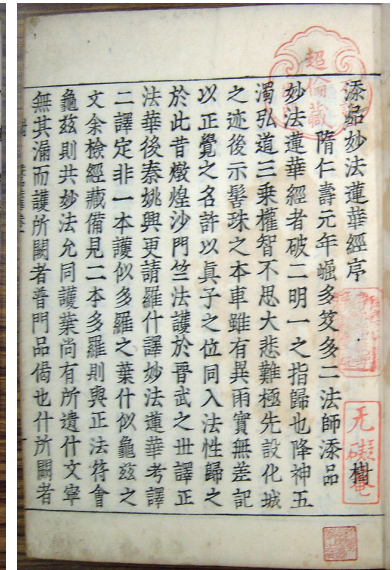 添品妙法蓮華經序 樹
隋仁壽元年崛多笈多二法師添品
妙法蓮華經者破二明一之指歸也降神五
濁弘道三乘權智不思大悲難極先設化城
之迹後示髻珠之本車雖有異雨實無差記
以正覺之名許以真子之位同入法性歸之
於此昔燉煌沙門竺法護於晉武之世譯正
法華後秦姚興更請羅什譯妙法蓮華考譯
二譯定非一本護似多羅之葉什似龜茲之
文余檢經藏備見二本多羅則與正法符會
龜茲則共妙法允同護葉尚有所遺什文寧
無其漏而護所闕者普門品偈也什所闕者
超倫藏
无礙菴